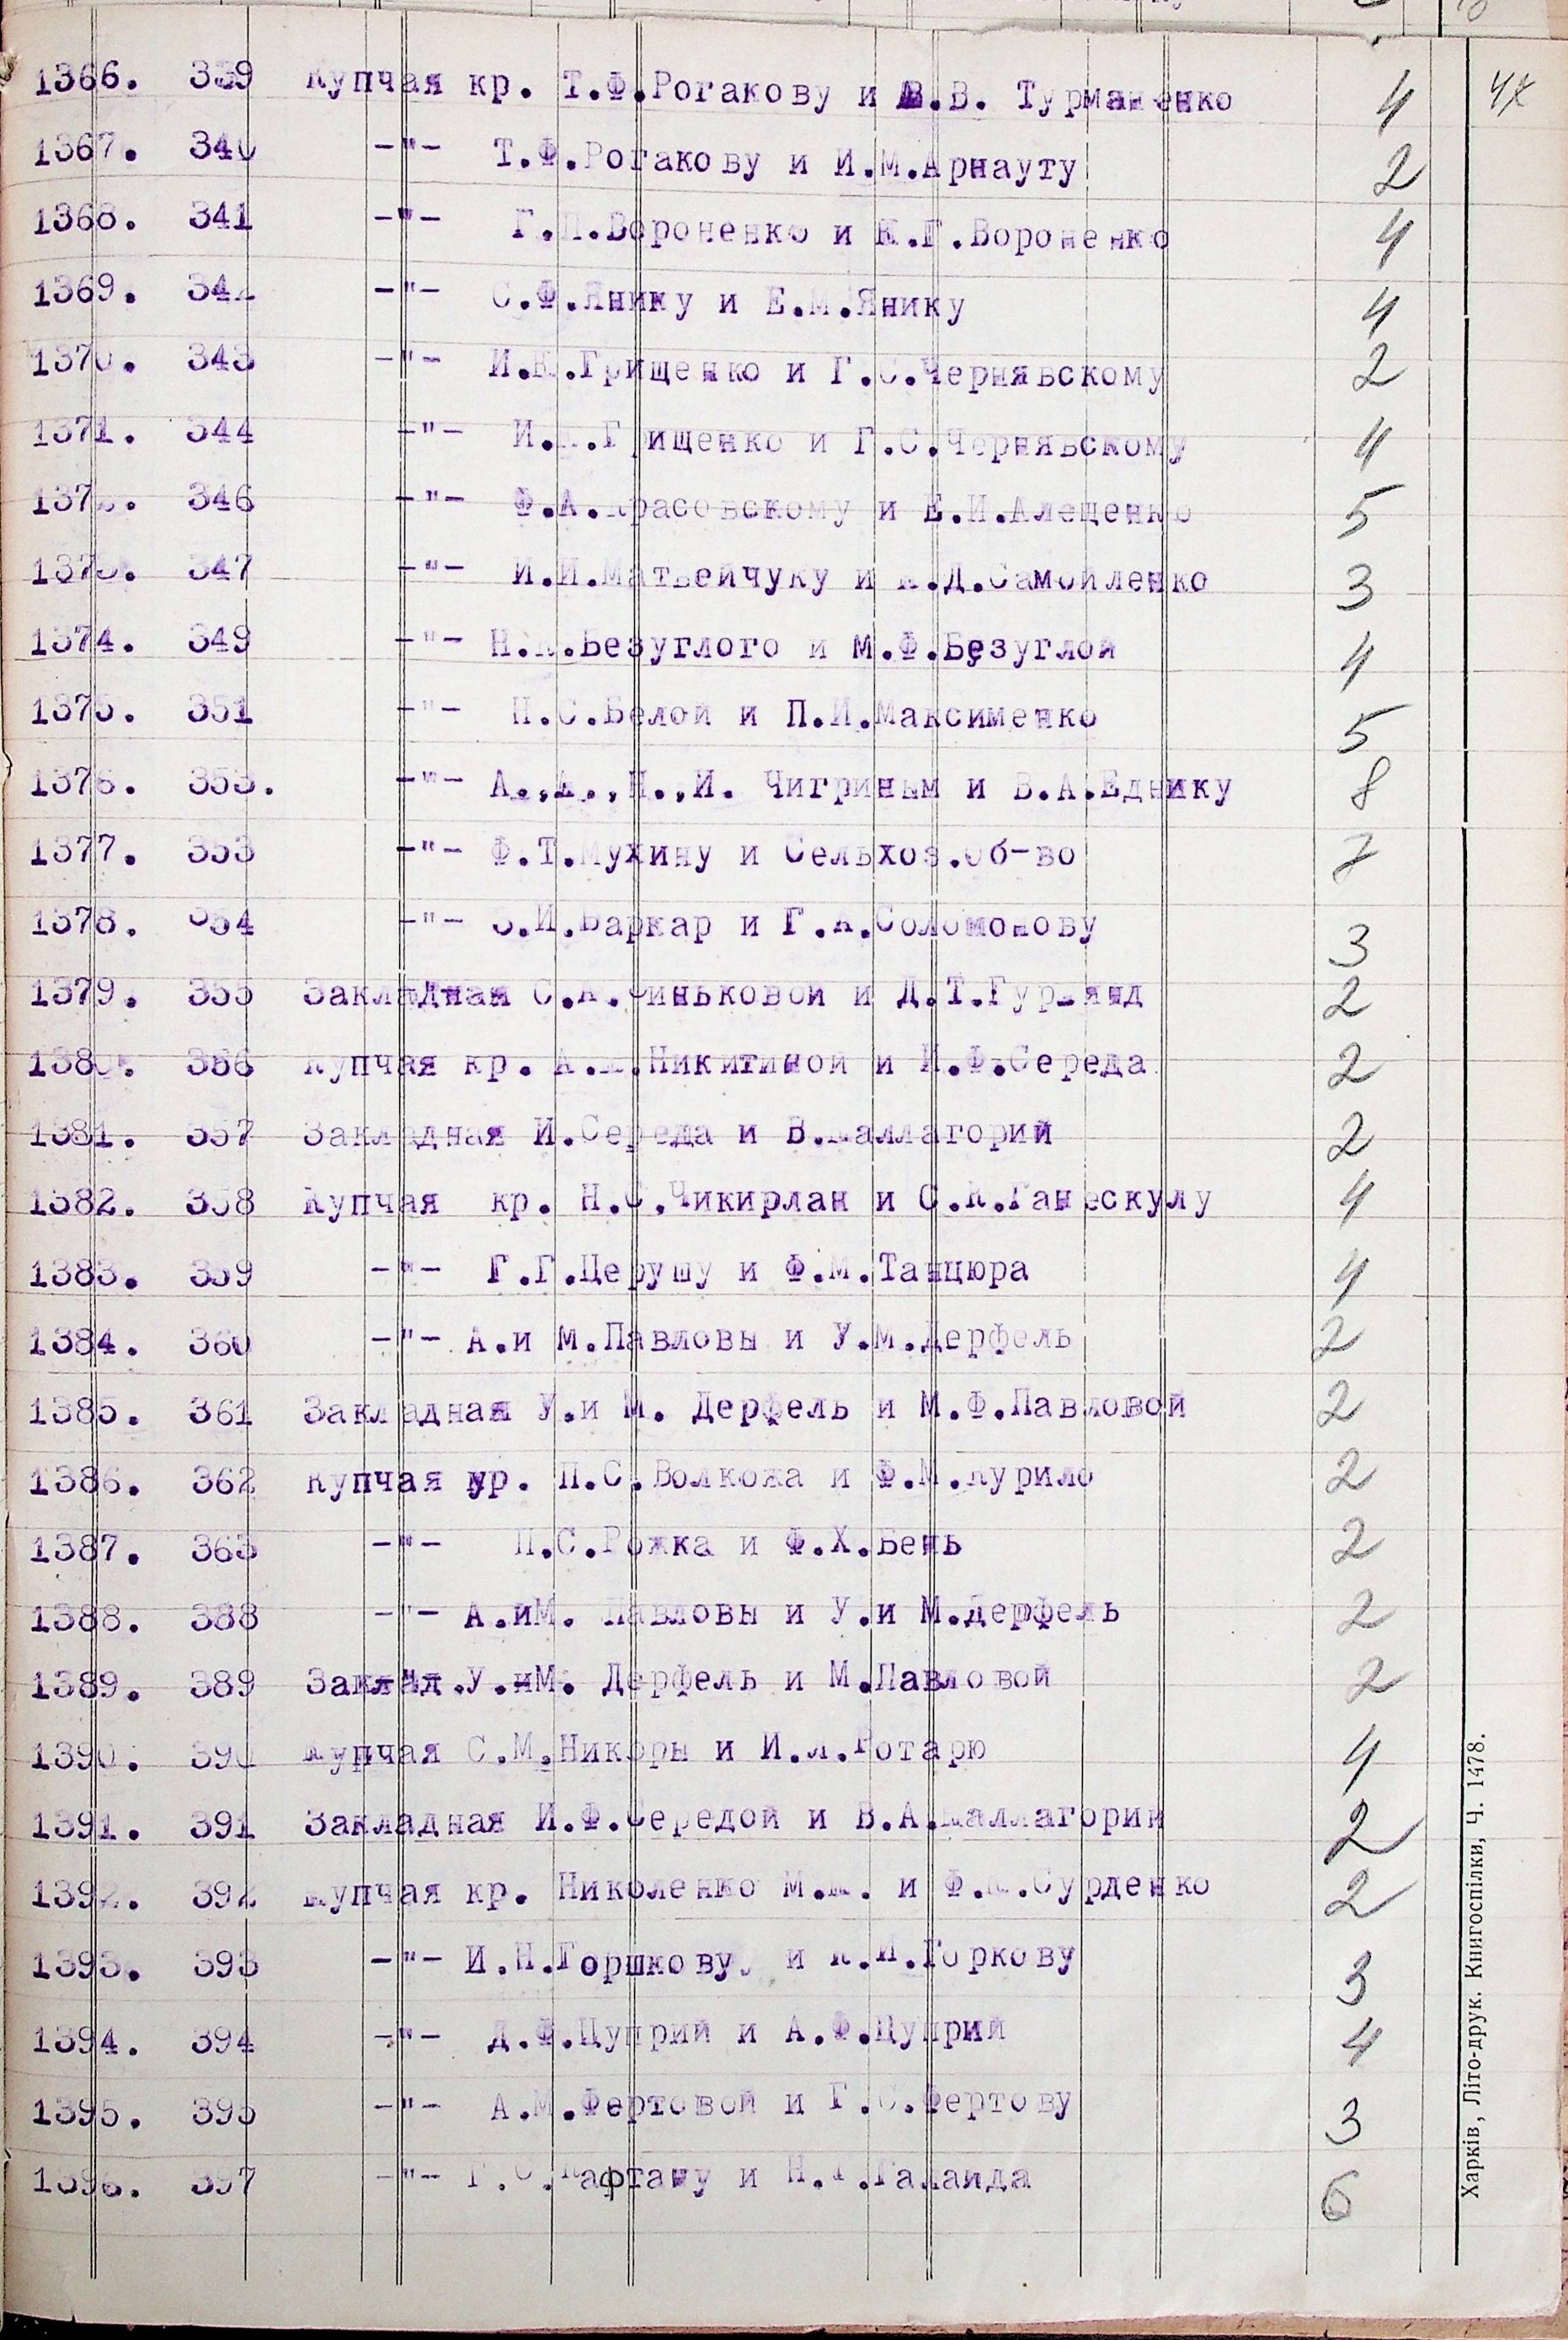 1366. 339 Купчая кр. Т.Ф.Рогакову и В.В. Турманенко 4
1367. 340 -"- Т.Ф.Рогакову и И.М.Арнауту 2
1368. 341 -"- Г.П.Вороненко и К.Г.Вороненко 4
1369. 342 -"- С.Ф.Янику и Е.М.Янику 4
1370. 343 -"- И.К.Грищенко и Г.С.Чернявскому 2
1371. 344 -"- И.К.Грищенко и Г.С.Чернявскому 4
1372. 346 -"- Ф.А.Красовскому и Е.И.Алещенко 5
1373. 347 -"- И.И.Матвейчуку и К.Д.Самойленко 3
1374. 349 -"- Н.К.Безуглого и М.Ф.Безуглой 4
1375. 351 -"- П.С.Белой и П.И.Максименко 5
1376. 353. -"- А.,А.,Н.,И. Чигриным и В.А.Еднику 8
1377. 353 -"- Ф.Т.Мухину и Сельхоз.об-во 7
1378. 354 -"- З.И.Варкар и Г.А.Соломонову 3
1379. 355 Закладная С.А.Чиньковой и Д.Т.Гурлянд 2
1380. 356 Купчая кр. Никитиной и И.Ф.Середа 2
1381. 357 Закладная И.Середа и В.Каллагорий 2
1382. 358 Купчая кр. Н.С.Чикирлан и С.К.Ганескулу 4
1383. 359 -"- Г.Г.Церушу и Ф.М.Танцюра 4
1384. 360 -"- А.и М.Павловы и У.М.Дерфель 2
1385. 361 Закладная У.и М. Дерфель и М.Ф.Павловой 2
1386. 362 Купчая кр. П.С.Волкожа и Ф.М.Курило 2
1387. 363 -"- П.С.Рожка и Ф.Х.Бень 2
1388. 388 -"- А.иМ. Павловы и У.и М.Дерфель 2
1389. 389 Заклад.У.иМ. Дерфель и М.Павловой 2
1390. 390 Купчая С.М.Никоры и И.Л.Ротарю 4
1391. 391 Закладная И.Ф.Середой и В.А.Каллагорий 2
1392. 392 Купчая кр. Николенко М.К. и Ф.К.Сурденко 2
1393. 393 -"- И.Н.Горшкову и К.И.Горкову 3
1394. 394 -"- Д.Ф.Цуприй и А.Ф.Цуприй 4
1395. 395 -"- А.М.Фертовой и Г.С.Фертову 3
1396. 397 -"- Г.С.Кафтану и Н.Г.Галаида 6
Харків, Літо-друк. Книгоспілки, Ч. 1478.